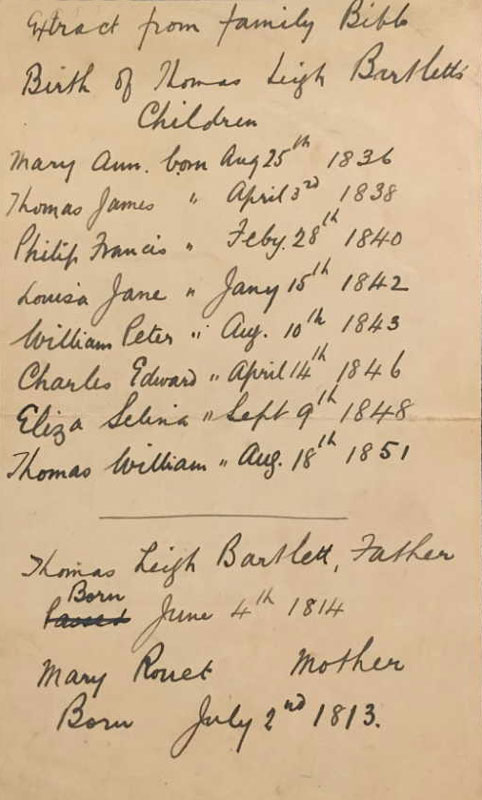 Extract from family Bible
Birth of Thomas Leigh Bartlett's
Children
Mary Ann. born Aug 25th 1836
Thomas James " April 3rd 1838
Philip Francis " Feby. 28th 1840
Louisa Jane " Jany 15th 1842
William Peter " Aug. 10th 1843
Charles Edward " April 14th 1846
Eliza Selina " Sept 9th 1848
Thomas William " Aug. 18th 1851
Thomas Leigh Bartlett, Father
Born
Passed June 4th 1814
Mary Rouet Mother
Born July 2nd 1813.